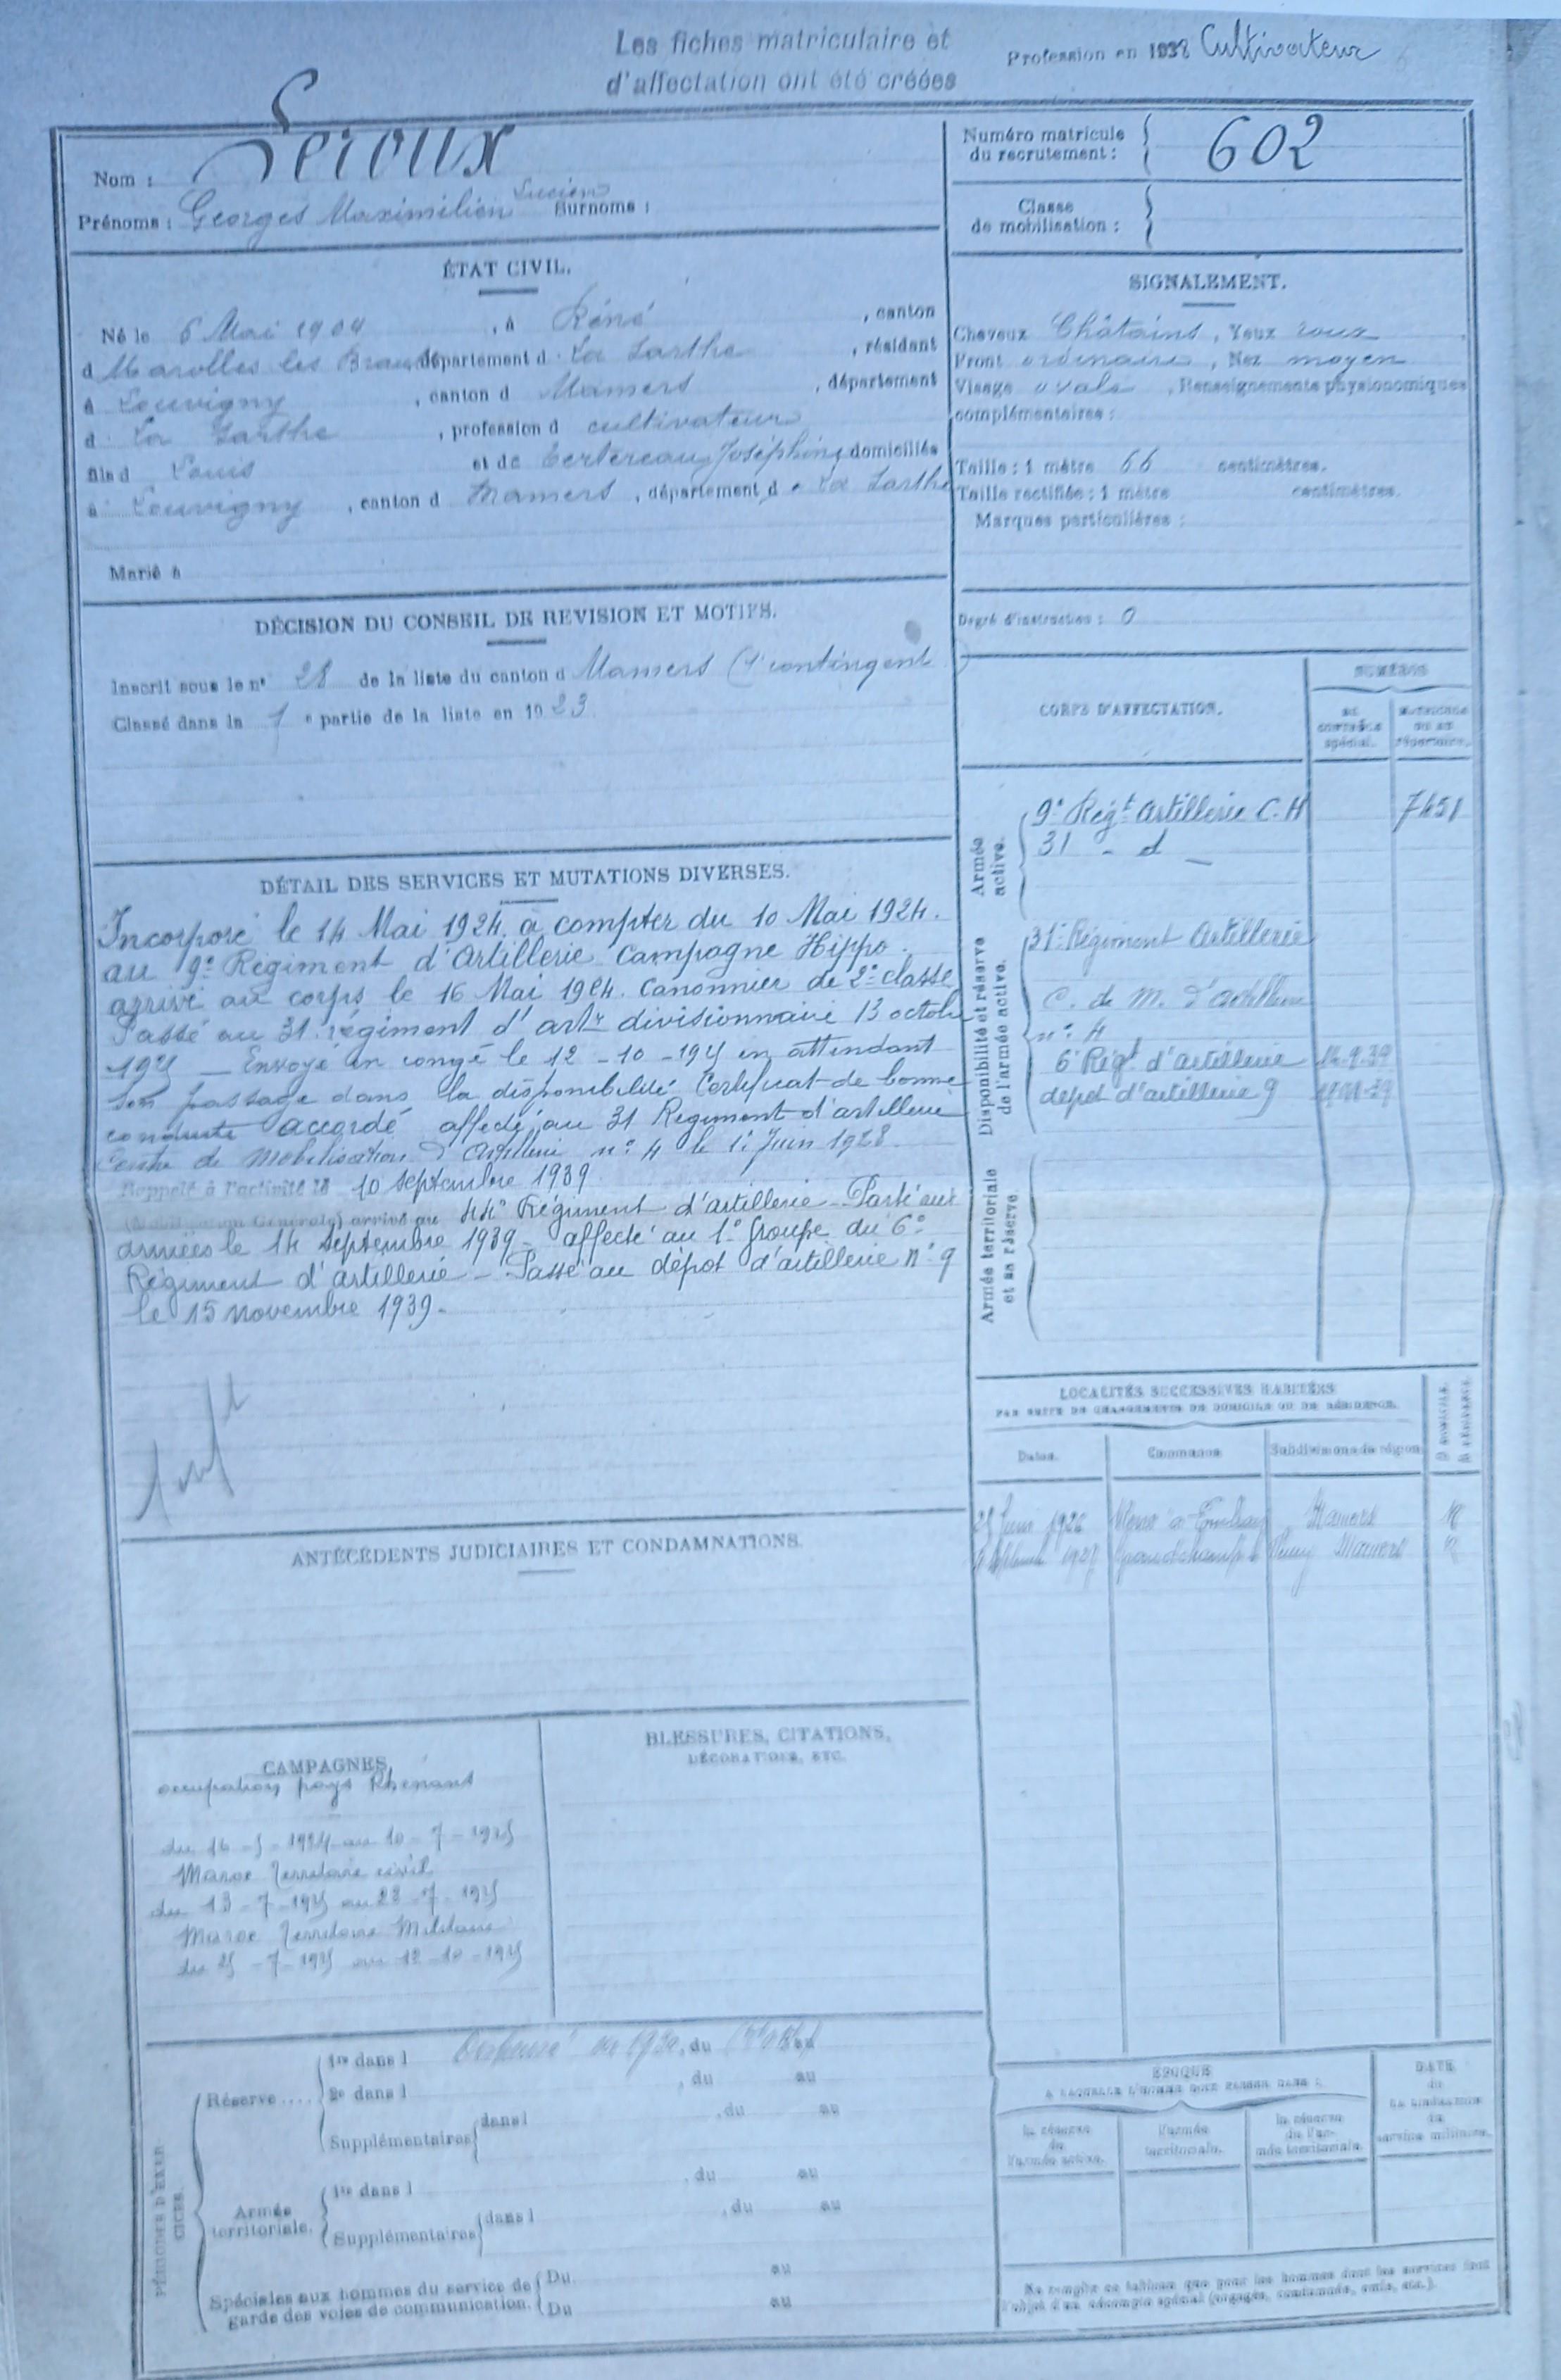 Les fiches matriculaire et
d'affectation ont été créées
Profession en 1938 Cultivateur
Nom : Leroux
Prénoms : Georges Maximilien Lucien Surnoms :
Numéro matricule
du recrutement : 602
Classe
de mobilisation :
ÉTAT CIVIL.
Né le 6 Mai 1904, à Réné, canton
d Marolles les Braux département d La Sarthe, résidant
à Louvigny, canton d Mamers, département
d La Sarthe, profession d cultivateur
fils d Louis et de Joséphine domiciliés
à Louvigny, canton d Mamers, département d La Sarthe
Marié à
SIGNALEMENT.
Cheveux Châtains, Yeux roux
Front ordinaire, Nez moyen
Visage ovale, Renseignements physionomiques
complémentaires :
Taille : 1 mètre 66 centimètres.
Taille rectifiée : 1 mètre centimètres.
Marques particulières :
Degré d'instruction : 0
DÉCISION DU CONSEIL DE REVISION ET MOTIFS.
Inscrit sous le n° 28 de la liste du canton d Mamers (1 contingent)
Classé dans la 1 e partie de la liste en 1923
DÉTAIL DES SERVICES ET MUTATIONS DIVERSES.
Incorporé le 14 Mai 1924 à compter du 10 Mai 1924.
au 9e Régiment d'Artillerie Campagne Hippo.
arrivé au corps le 16 Mai 1924. Canonnier de 2e classe
Passé au 31e régiment d'artie divisionnaire 13 octobre
1925 — Envoyé en congé le 12-10-1925 en attendant
son passage dans la disponibilité. Certificat de bonne
conduite accordé affecté au 31 Régiment d'artillerie
Centre de Mobilisation d'Artillerie n° 4 le 1e Juin 1928
Rappelé à l'activité le 10 septembre 1939
(Mobilisation Générale) arrivé au 44e Régiment d'artillerie - Parti aux
armées le 14 septembre 1939 - affecté au 1e groupe du 6e
Régiment d'artillerie - Passé au dépôt d'artillerie n° 9
le 15 novembre 1939.
CORPS D'AFFECTATION.
NUMÉROS
DU CONTRÔLE spécial.
MATRICULE OU AU répertoire.
Armée active.
9e Régt Artillerie C.H 7451
31 - d -
Disponibilité et réserve de l'armée active.
31e Régiment Artillerie
C. de M. d'artillerie
n° 4
6e Régt d'artillerie 14-9-39
dépot d'artillerie 9
Armée territoriale et sa réserve.
LOCALITÉS SUCCESSIVES HABITÉES
PAR SUITE DE CHANGEMENTS DE DOMICILE OU DE RÉSIDENCE.
Dates. Communes Subdivisions de région
Juin 1926 Mamers
1927 Grandchamp Mamers
ANTÉCÉDENTS JUDICIAIRES ET CONDAMNATIONS.
CAMPAGNES.
occupation pays Rhénans
du 16-5-1924 au 10-7-1925
Maroc Territoire civil
du 13-7-1925 au 22-7-1925
Maroc Territoire Militaire
du 25-7-1925 au 12-10-1925
BLESSURES, CITATIONS,
DÉCORATIONS, ETC.
PÉRIODES D'EXERCICES.
Réserve.... 1re dans l du au
2e dans l , du au
Supplémentaires dans l , du au
Armée territoriale. 1re dans l , du au
Supplémentaires dans l , du au
Spéciales aux hommes du service de garde des voies de communication. Du au
Du au
ÉPOQUE
À LAQUELLE L'HOMME DOIT PASSER DANS :
la réserve de l'armée active.
l'armée territoriale.
la réserve de l'armée territoriale.
DATE de LA LIBÉRATION du service militaire.
Ne remplir ce tableau que pour les hommes dont les services font
l'objet d'un décompte spécial (engagés, condamnés, omis, etc.).